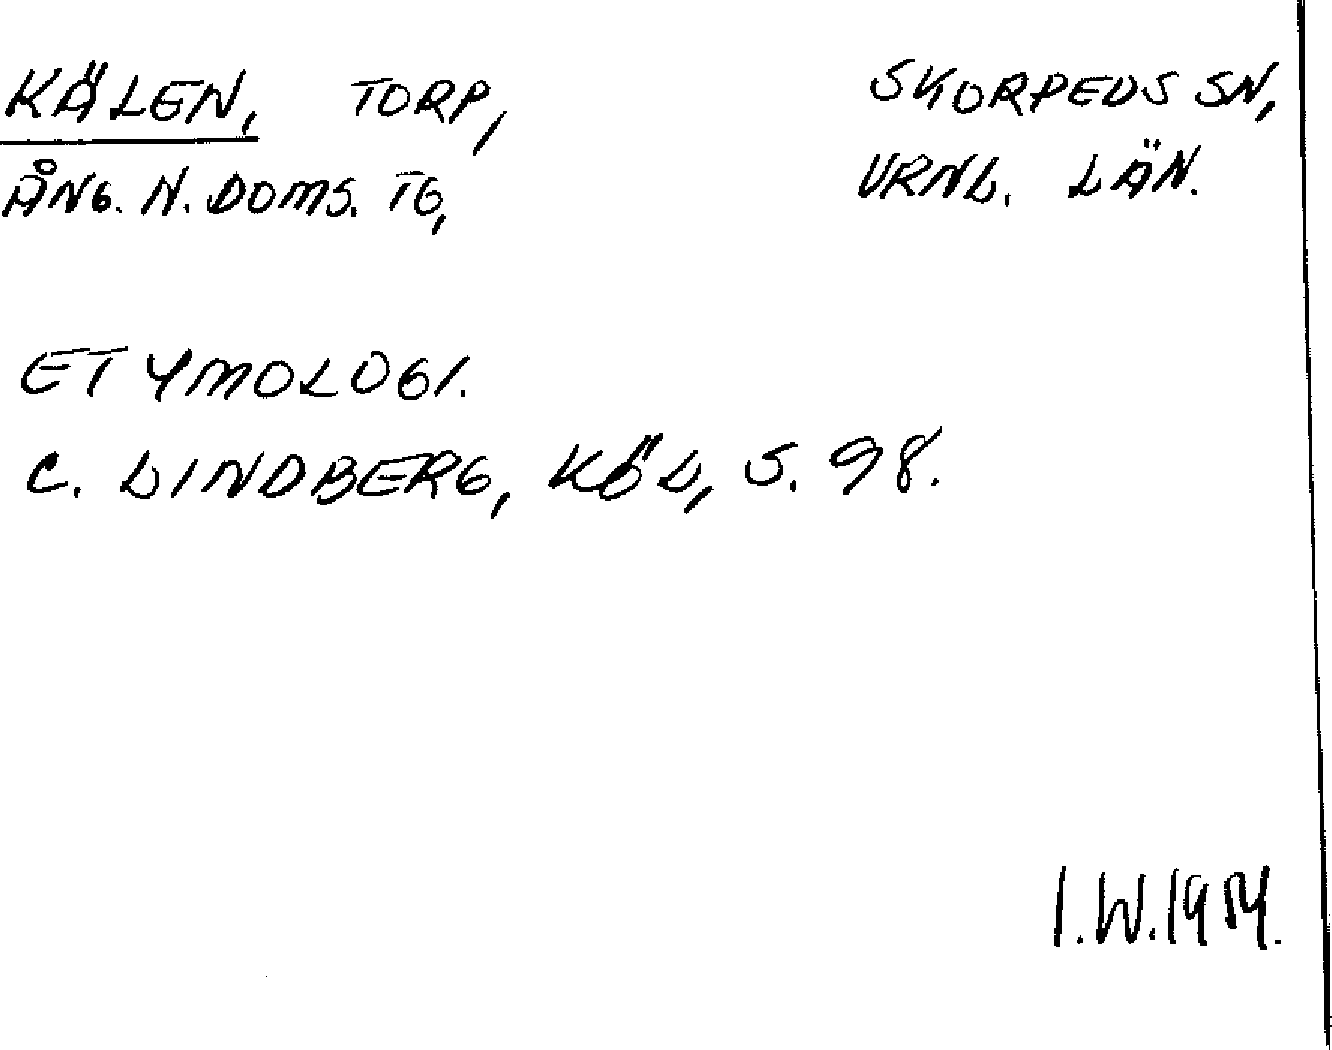 KÄLEN, TORP, SKORPEDS SN,
ÅNG. N. DOMS. TG, VRNL. LÄN.
ETYMOLOGI.
C. LINDBERG, KÖL, S. 98.
I.W.1954.